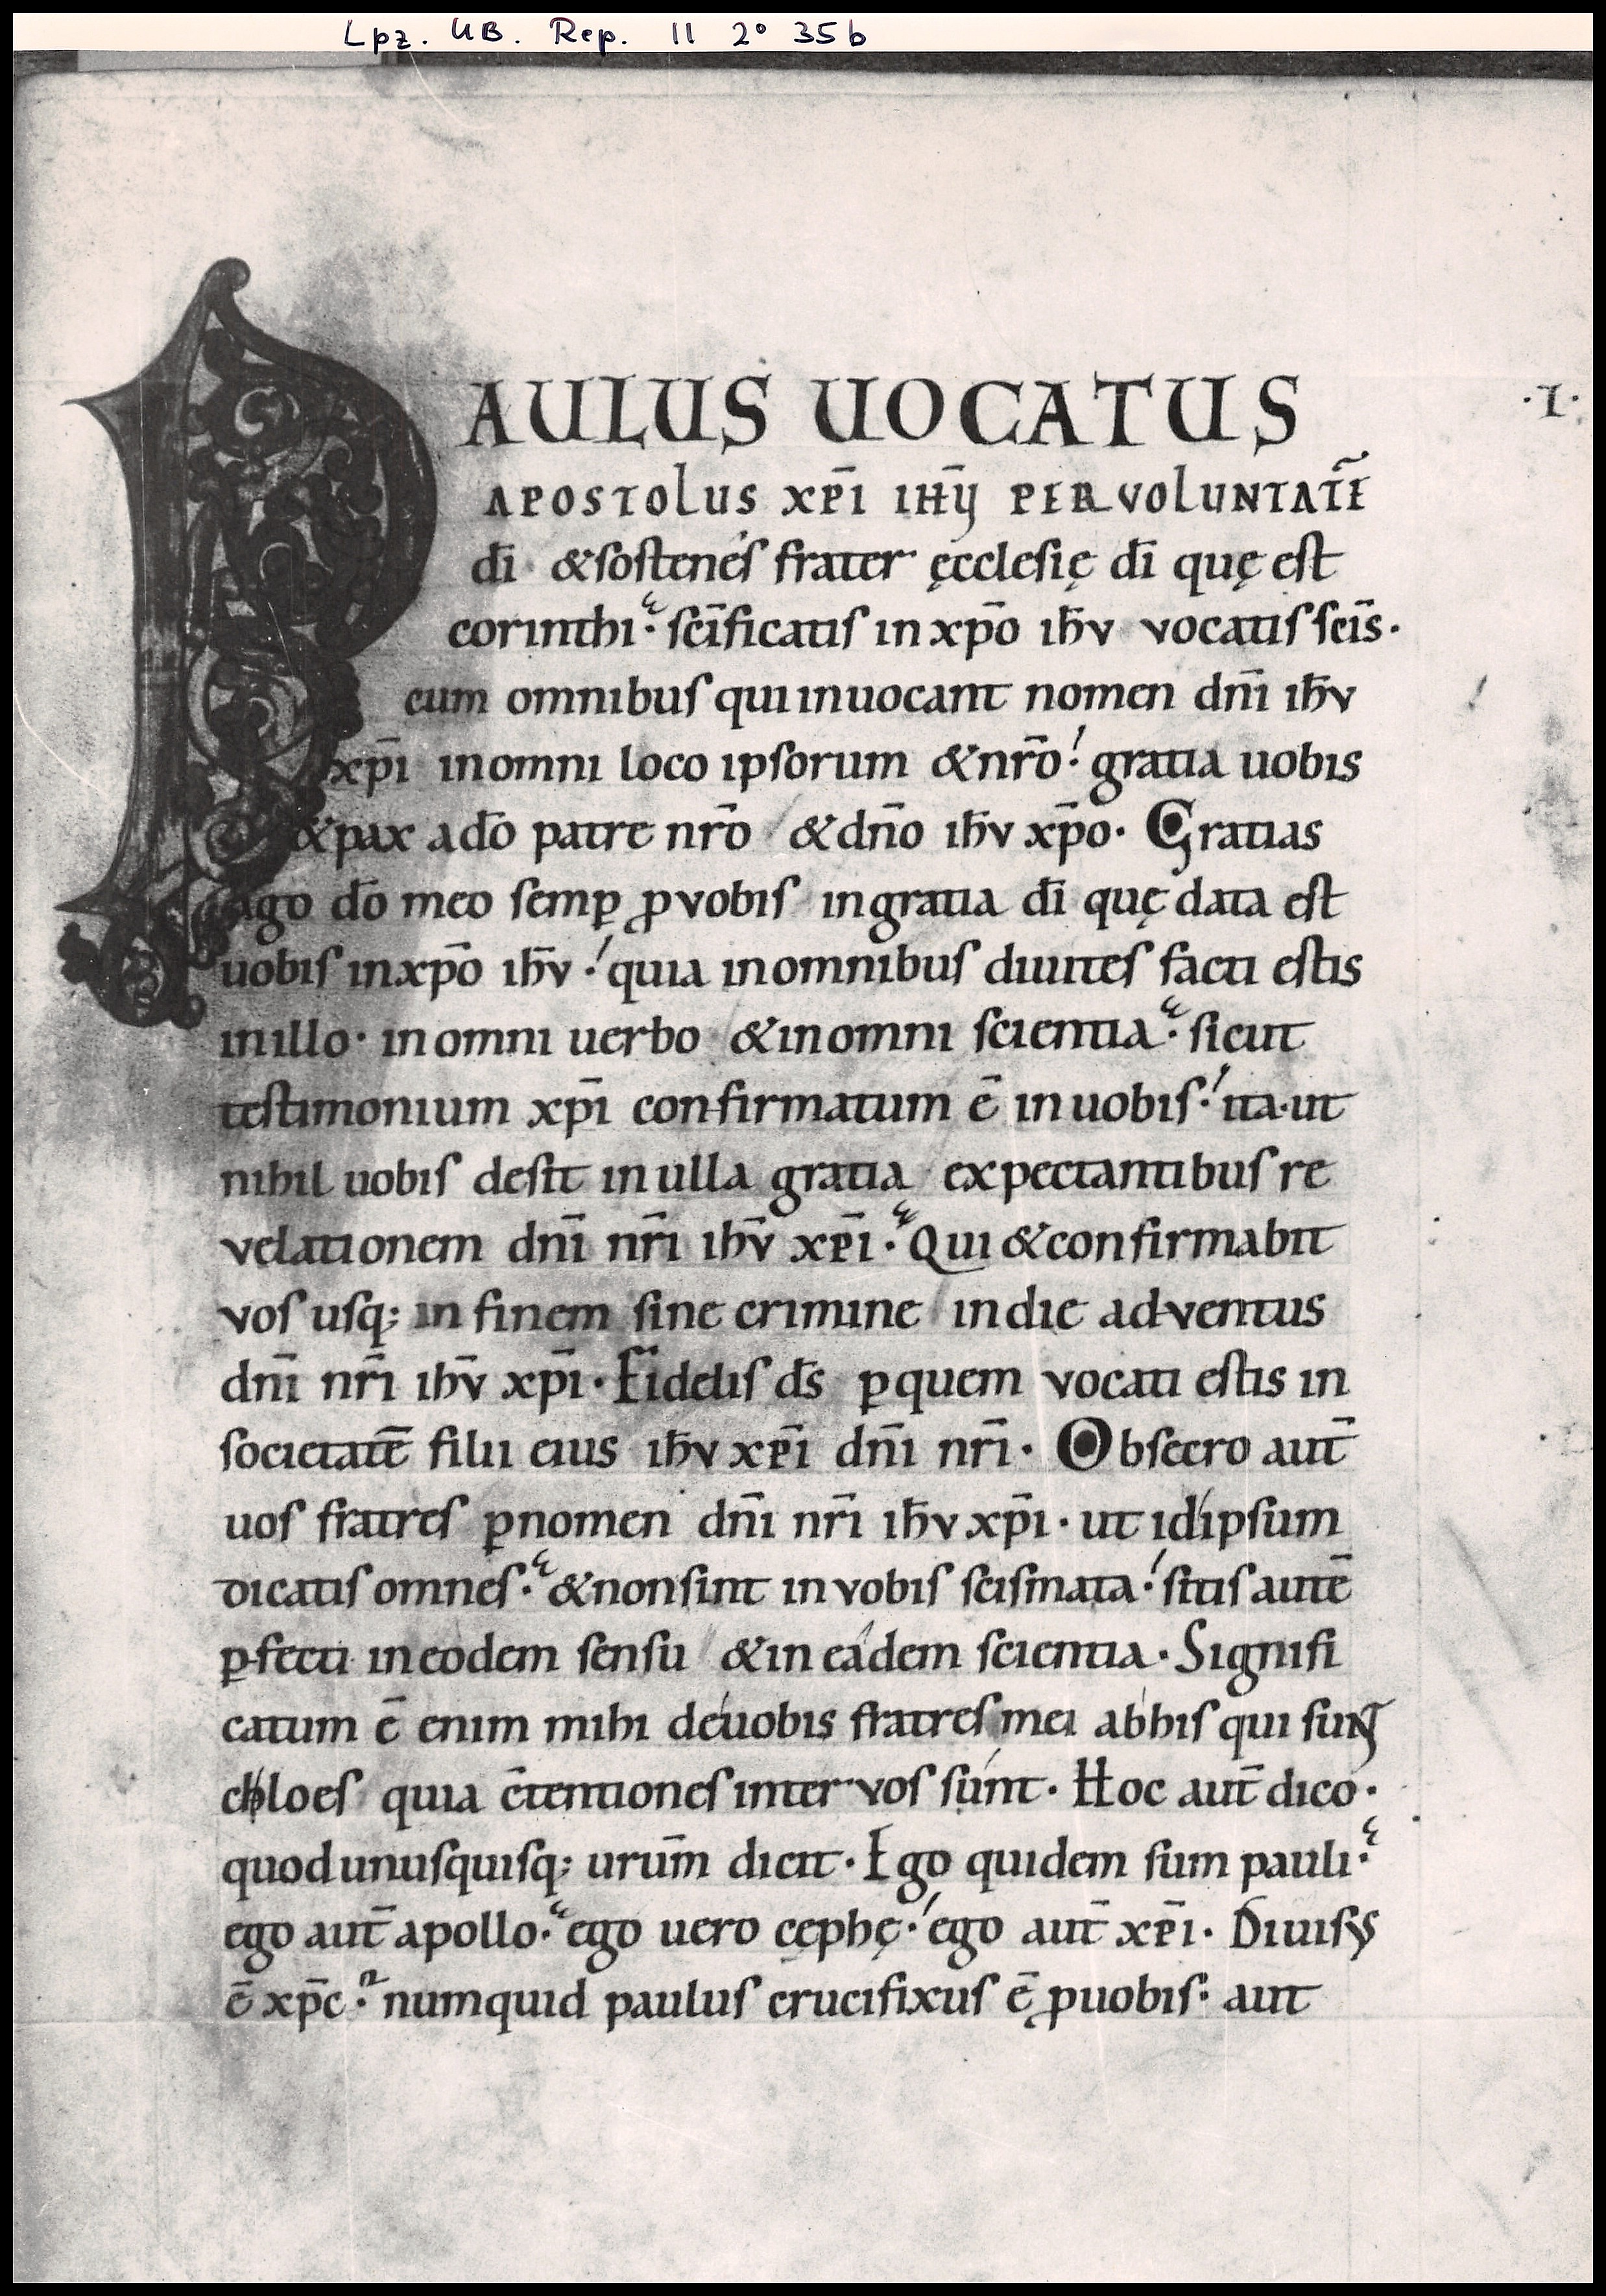 Lpz. UB. Rep. II 2° 35b
PAULUS UOCATUS
·I·
APOSTOLUS XP̄I IHY̅ PER VOLUNTATĒ
dī & sostenes frater ęcclesię dī quę est
corinthi· sc̄ificatis in xp̄o ih̄v vocatis sc̄is·
cum omnibus qui inuocant nomen dn̄i ih̄v
xp̄i in omni loco ipsorum & nr̄o· gratia uobis
& pax a dō patre nr̄o & dn̄o ih̄v xp̄o· Gratias
ago dō meo semꝑ ꝓ vobis in gratia dī quę data est
uobis in xp̄o ih̄v· quia in omnibus diuites facti estis
in illo· in omni uerbo & in omni scientia· sicut
testimonium xp̄i confirmatum ē in uobis· ita ut
nihil uobis desit in ulla gratia expectantibus re
velationem dn̄i nr̄i ih̄v xp̄i· Qui & confirmabit
vos usq; in finem sine crimine in die adventus
dn̄i nr̄i ih̄v xp̄i· Fidelis ds̄ ꝑ quem vocati estis in
societatē filii eius ih̄v xp̄i dn̄i nr̄i· Obsecro aut̄
uos fratres ꝑ nomen dn̄i nr̄i ih̄v xp̄i· ut idipsum
dicatis omnes· & non sint in vobis scismata· sitis autē
ꝑfecti in eodem sensu & in eadem scientia· Signifi
catum ē enim mihi de uobis fratres mei ab his qui sunt
chloes quia c̄tentiones inter vos sunt· Hoc aut̄ dico·
quod unusquisq; urūm dicit· Ego quidem sum pauli·
ego aut̄ apollo· ego uero cęphę· ego aut̄ xp̄i· Diuisus
ē xp̄c· numquid paulus crucifixus ē ꝓ uobis· aut